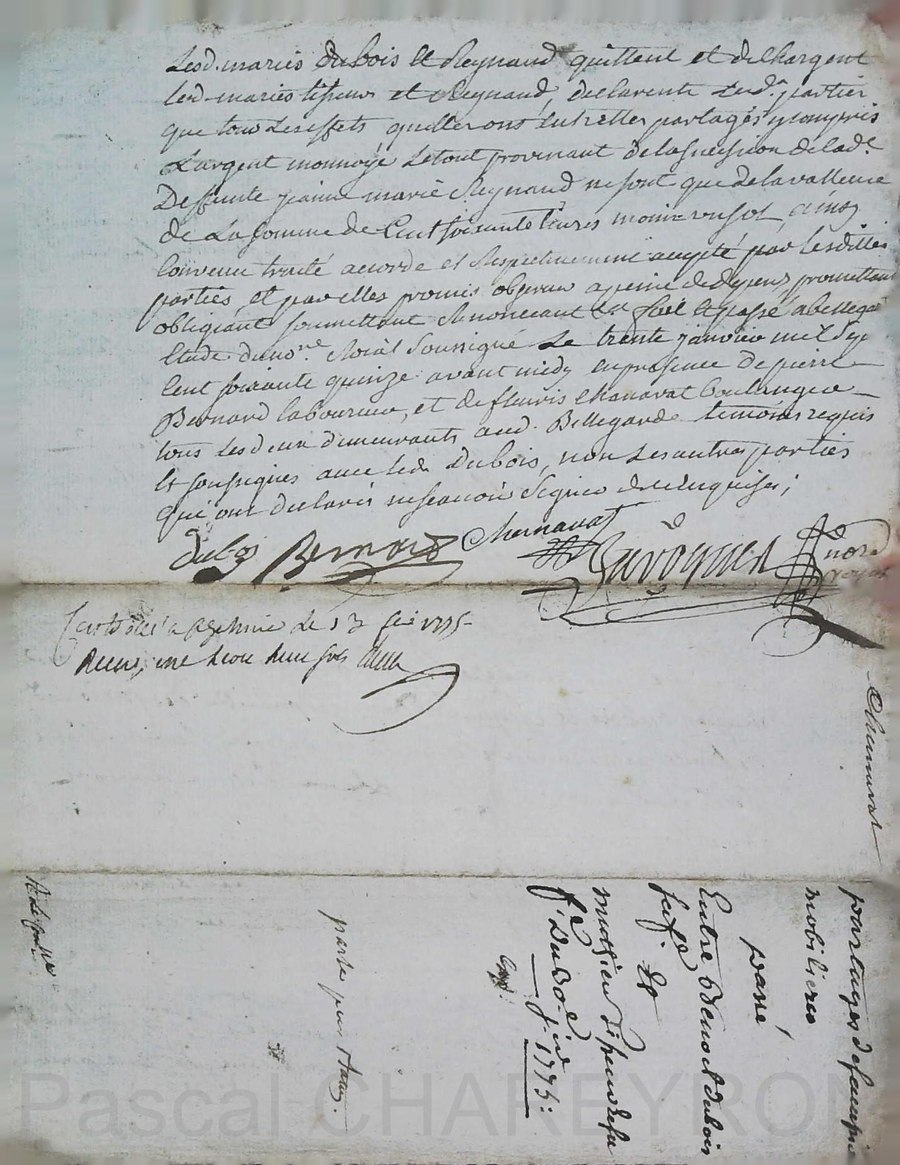 Lesd. mariés Dubois et Reynaud quittent et dechargent
lesd. mariés et Reynaud, declarent lesd. parties
que tous les effets qu'elles ont entre elles partagés y compris
L'argent monnoyé le tout provenant de la succession de lad.e
Deffunte jeanne marie Reynaud ne sont que de la valleur
de La somme de Cent soixante livres moins un sol, ainsy
Convenu traité accordé et Respectivement accepté par lesdittes
parties, et par elles promis observer a peine de depens promettant
obligeant soumettant Renonceant &a fait et passé a bellegarde
Etude du no.re Roïal soussigné Le trente janvier mil sept
Cent soixante quinze avant midy en presence de pierre
Bernard laboureur, et de fleuris Chanavat boulanger
tous les deux demeurants aud. Bellegarde temoins requis
et soussignés avec led. Dubois, non les autres parties
qui ont declarés ne sçavoir signer de ce enquises;
Dubois Bernard Chanavat no.re
Royal
le 13 fév 1775
Recu, une livre neuf sols
Chanavat
partages de
mobiliers
passé
Entre Benoit dubois
Et
mathieu
Dubois
1775: